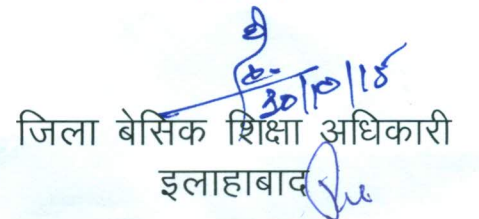 30/10/18
जिला बेसिक शिक्षा अधिकारी
इलाहाबाद